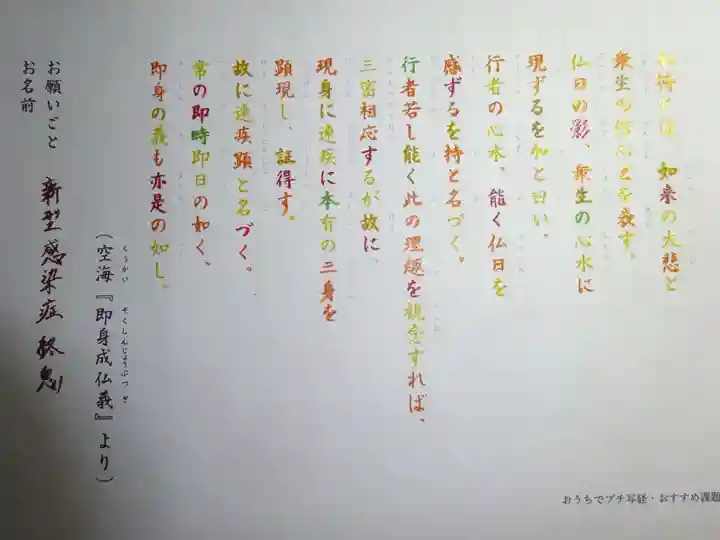 加持とは、如来の大悲と
衆生の信心とを表す。
仏日の影、衆生の心水に
現ずるを加と曰い、
行者の心水、能く仏日を
感ずるを持と名づく。
行者若し能く此の理趣を観念すれば、
三密相応するが故に、
現身に速疾に本有の三身を
顕現し、証得す。
故に速疾顕と名づく。
常の即時即日の如く、
即身の義も亦是の如し。
(空海『即身成仏義』より)
くうかい そくしんじょうぶつぎ
お願いごと 新型感染症 終息
お名前
おうちでプチ写経・おすすめ課題